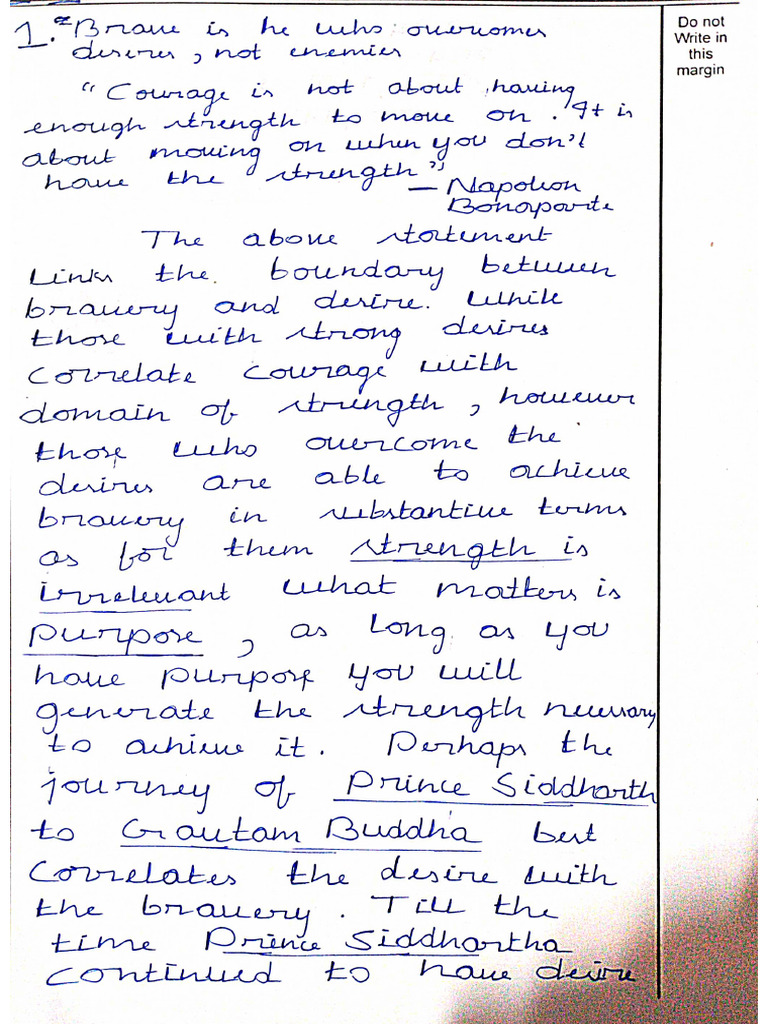 1. "Brave is he who overcomes
desires, not enemies
"Courage is not about having
enough strength to move on. It is
about moving on when you don't
have the strength"
— Napoleon
Bonaparte
The above statement
links the boundary between
bravery and desire. While
those with strong desires
correlate courage with
domain of strength, however
those who overcome the
desires are able to achieve
bravery in substantive terms
as for them strength is
irrelevant what matters is
purpose, as long as you
have purpose you will
generate the strength necessary
to achieve it. Perhaps the
journey of Prince Siddharth
to Gautam Buddha best
correlates the desire with
the bravery. Till the
time Prince Siddhartha
continued to have desire
Do not
Write in
this
margin